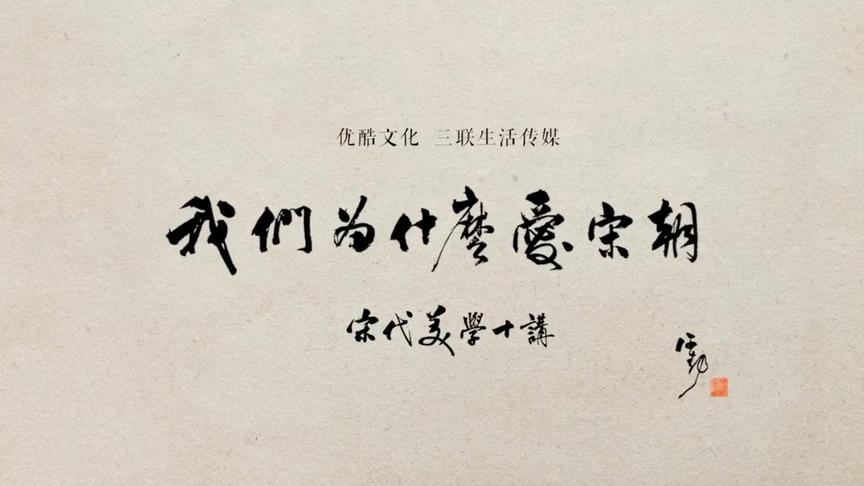 优酷文化 三联生活传媒
我們为什麼愛宋朝
宋代美學十講